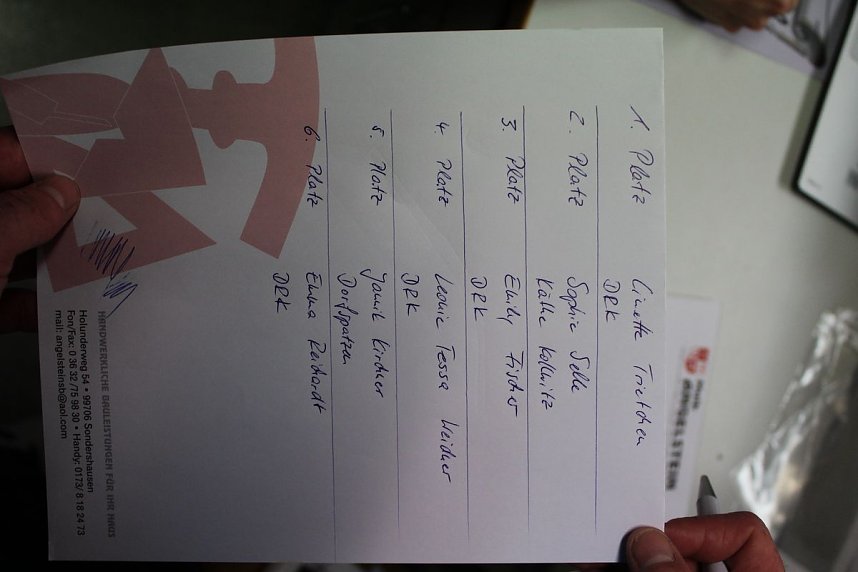 1. Platz Linette Trietchen
DRK
2. Platz Sophie Selle
Käthe Kollwitz
3. Platz Emily Fischer
DRK
4. Platz Leonie Tessa Weidner
DRK
5. Platz Jannik Kirchner
Dorfspatzen
6. Platz Emma Reichardt
DRK
HANDWERKLICHE BAULEISTUNGEN FÜR IHR HAUS
Holunderweg 54 • 99706 Sondershausen
Fon/Fax: 0 36 32 / 75 98 30 • Handy: 0173/ 8 18 24 73
mail: angelsteinsb@aol.com
ANGELSTEIN